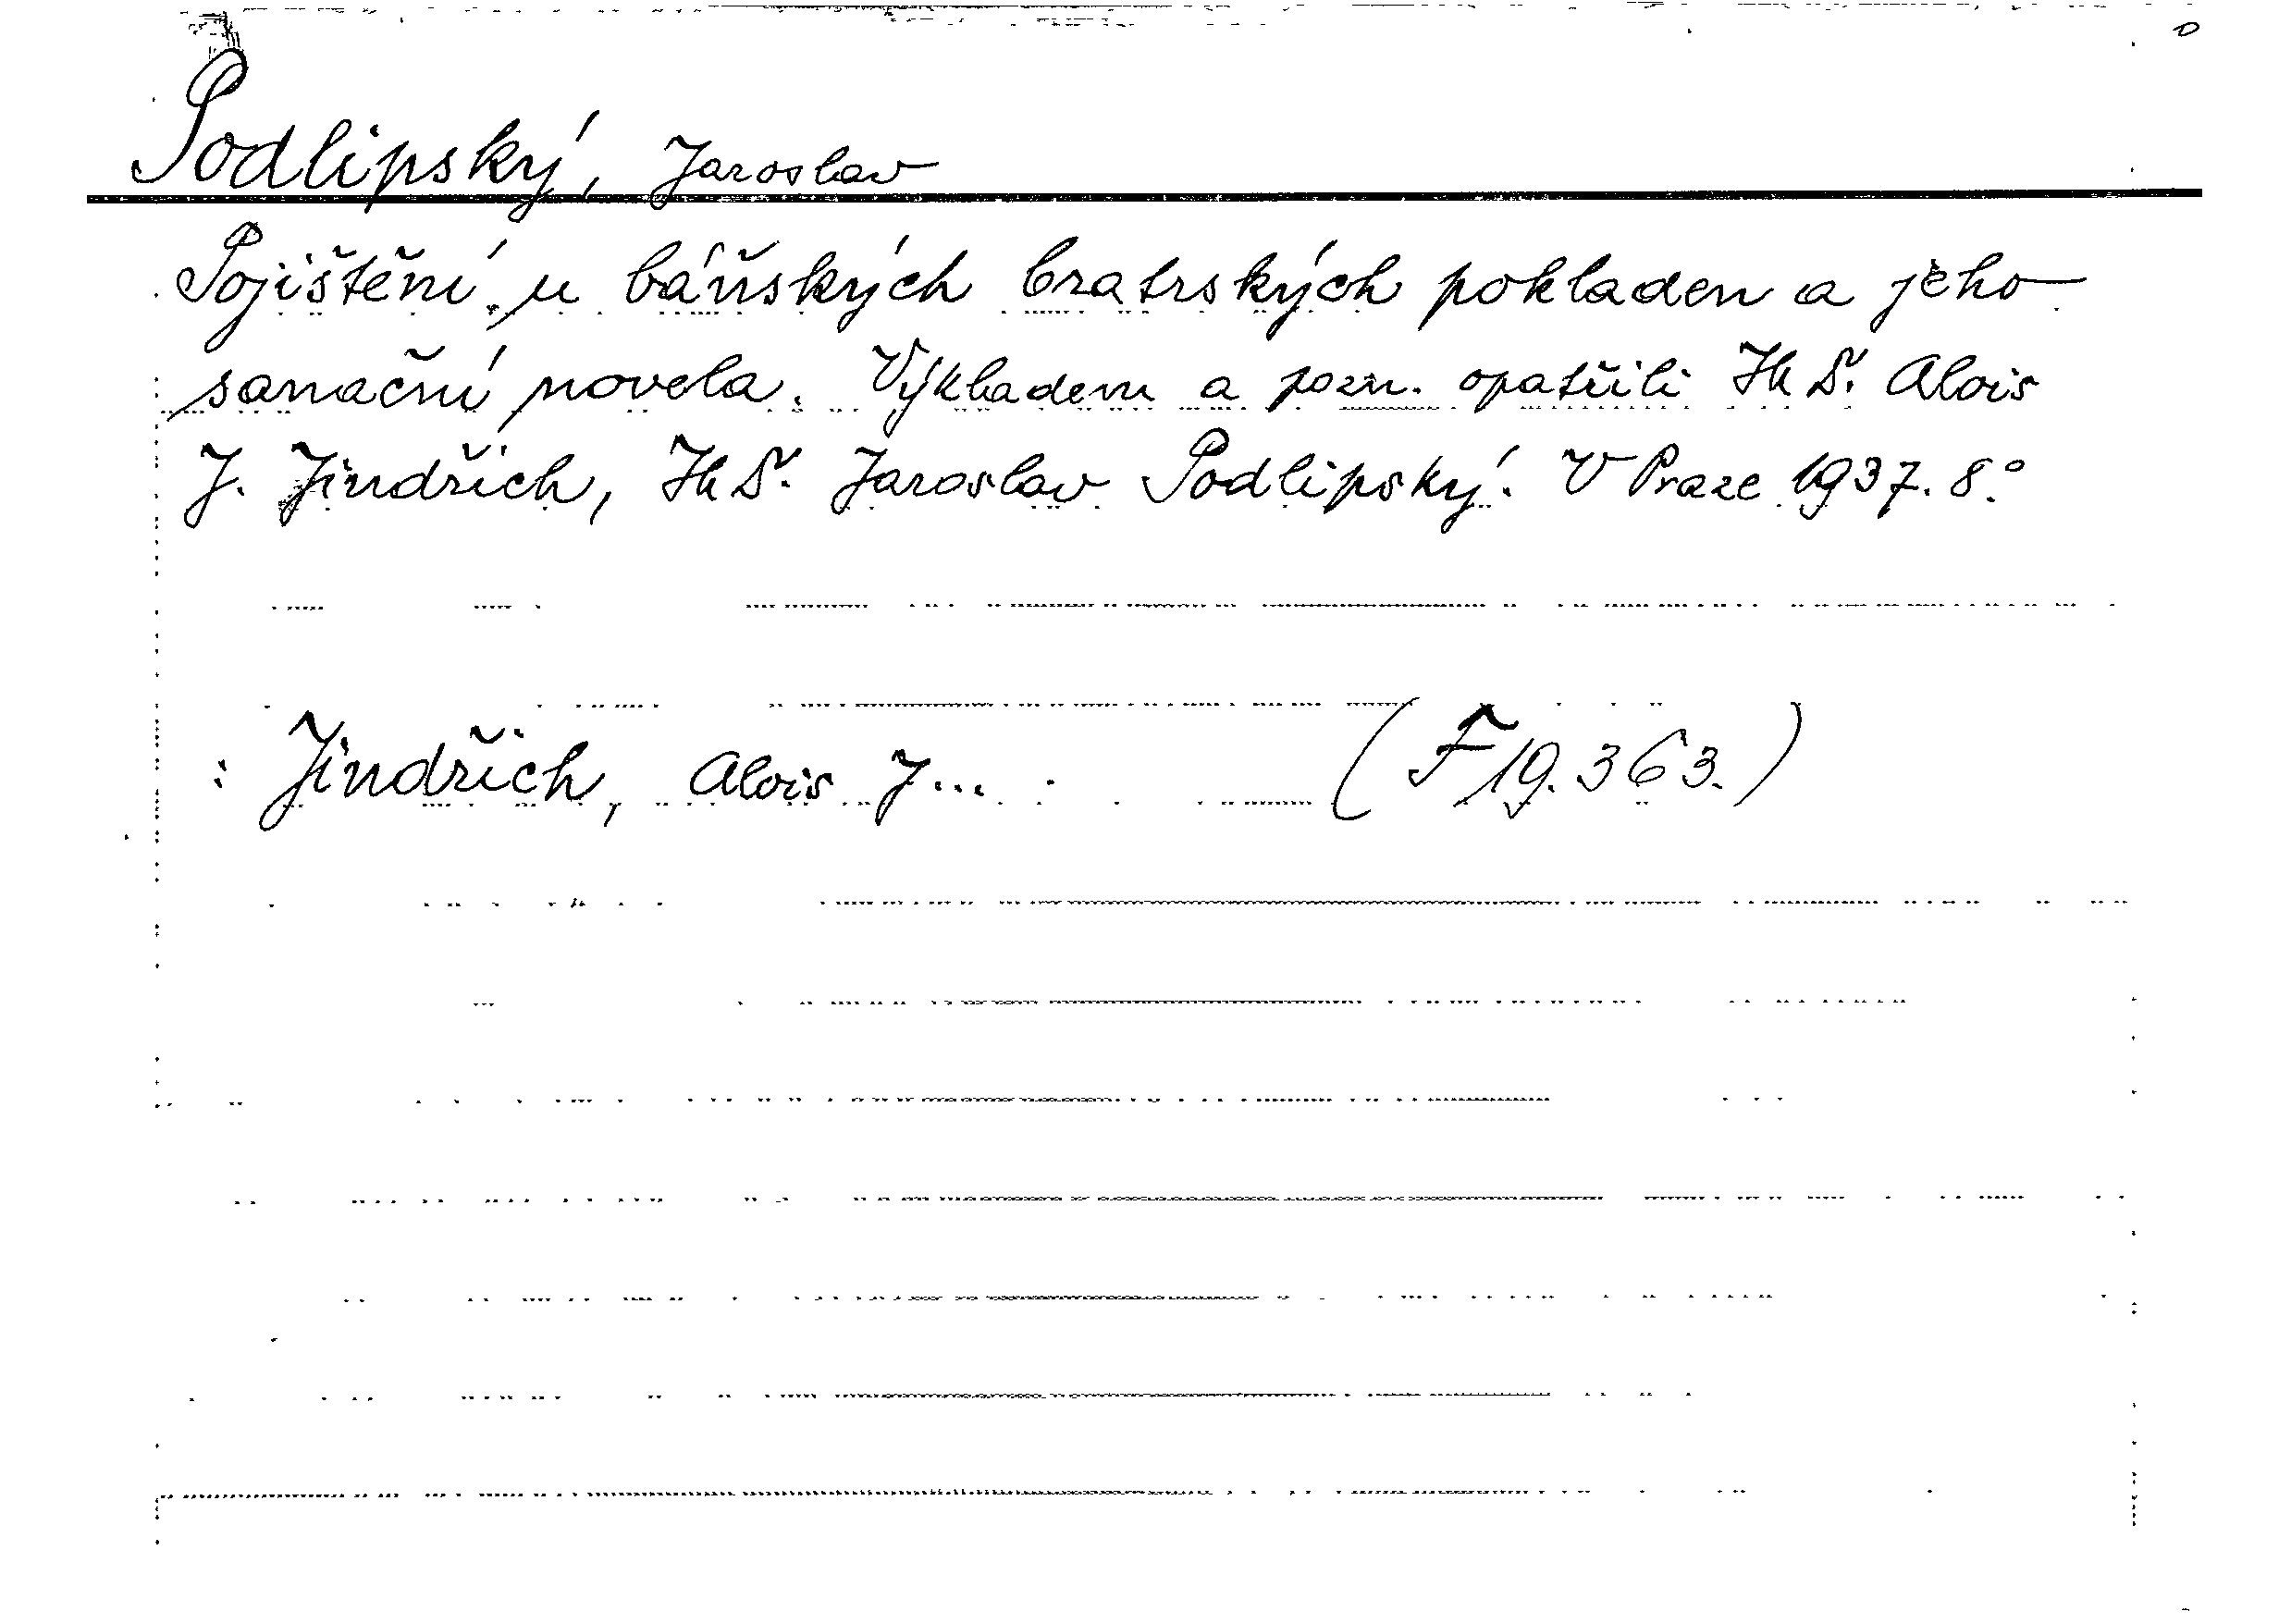 Podlipský, Jaroslav
Pojištění u báňských bratrských pokladen a jeho
sanační novela. Výkladem a pozn. opatřili JUDr. Alois
J. Jindřich, JUDr. Jaroslav Podlipský. V Praze 1937. 8.°
: Jindřich, Alois J... (F 19.363.)